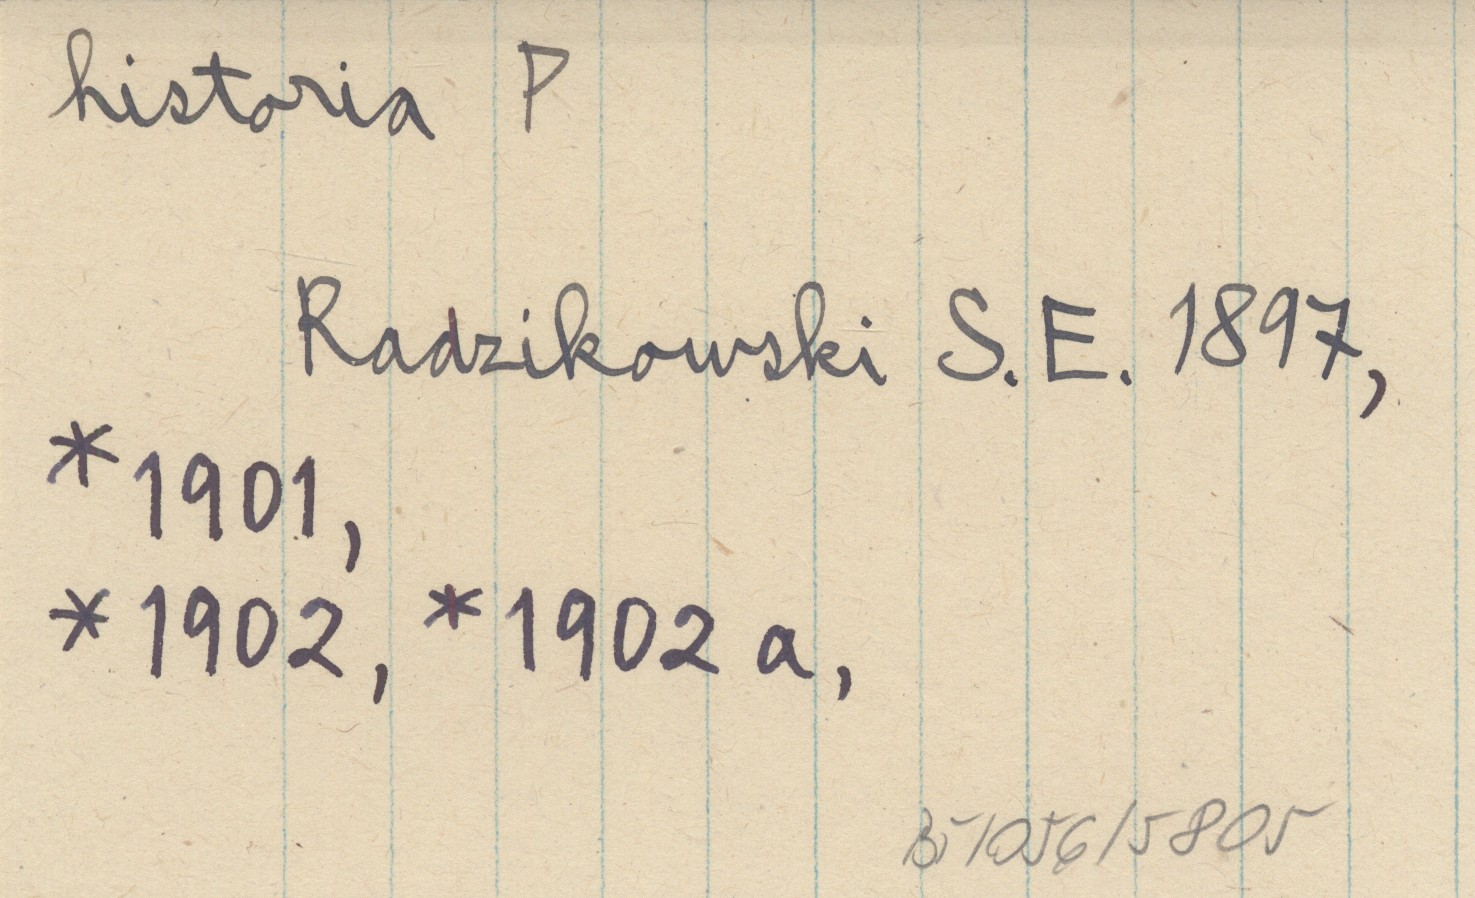 historia P
Radzikowski S. E. 1897,
* 1901,
* 1902, * 1902 a,
B5/056/5805